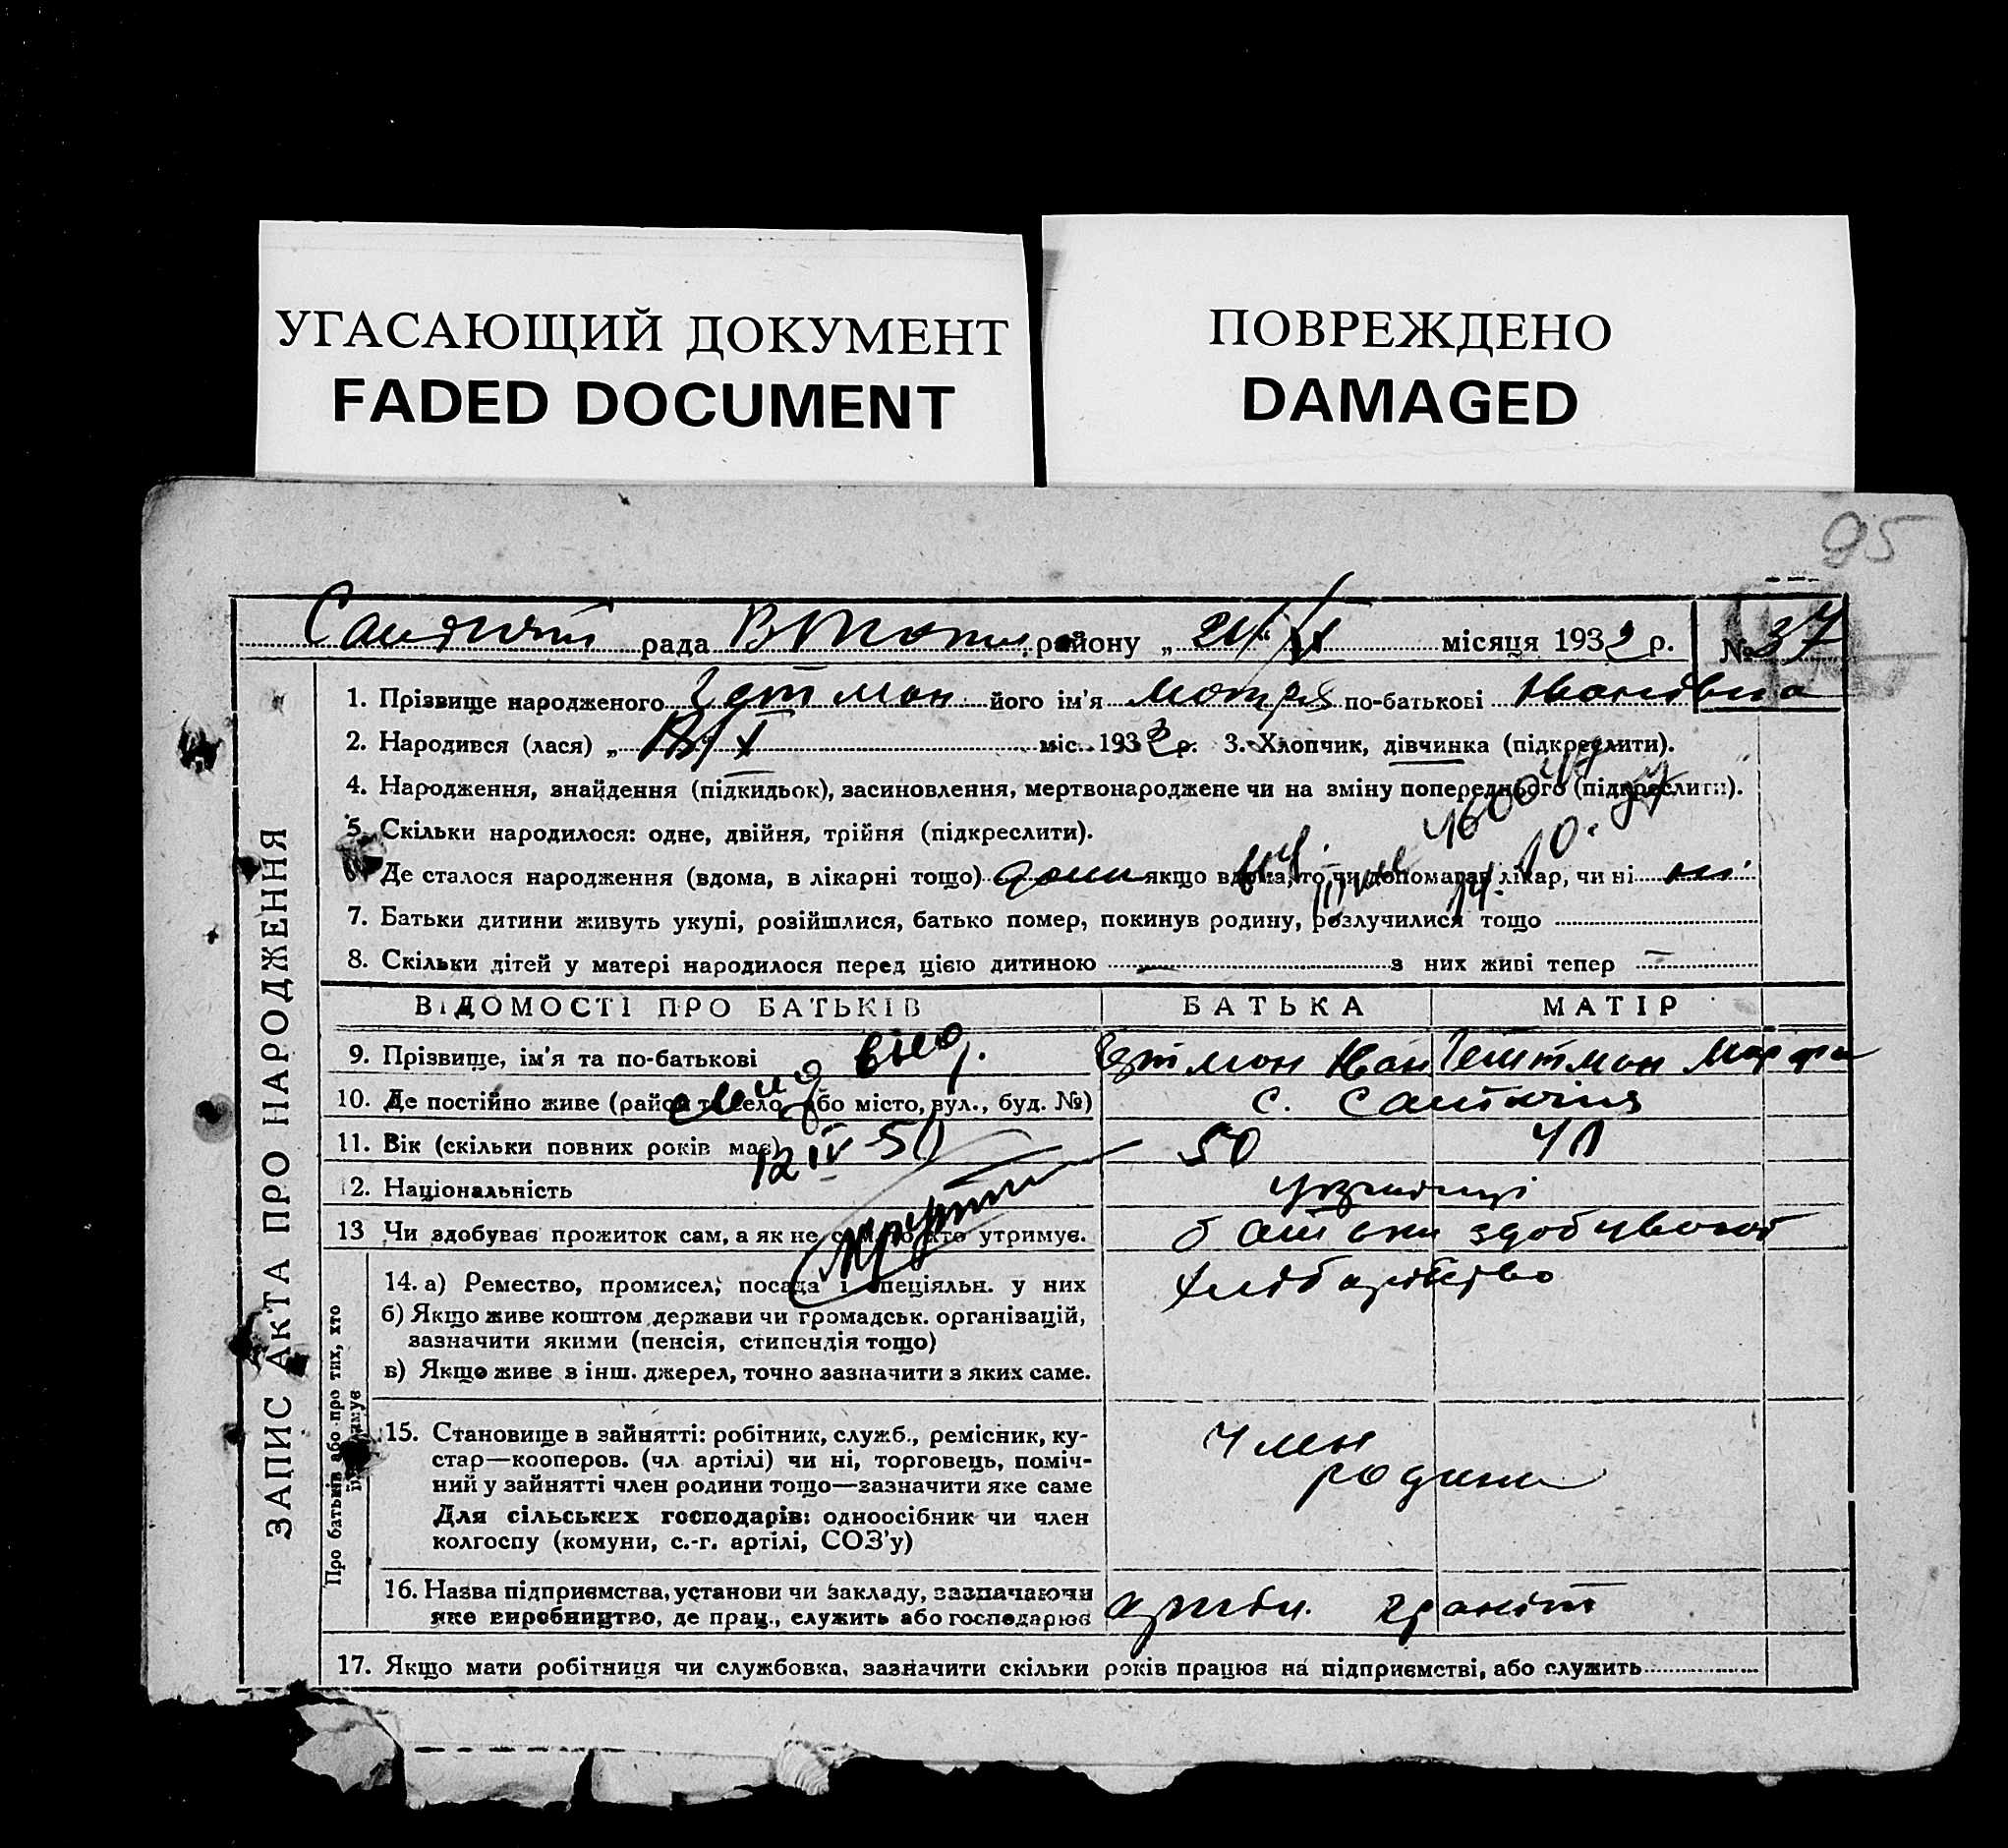 УГАСАЮЩИЙ ДОКУМЕНТ
FADED DOCUMENT
ПОВРЕЖДЕНО
DAMAGED
95
рада району „ 24/XI місяця 1932 р. № 37
1. Прізвище народженого Гетман його ім'я Мотря по-батькові Иванівна
2. Народився (лася) „ /X міс. 1932 р. 3. Хлопчик, дівчинка (підкреслити).
4. Народження, знайдення (підкидьок), засиновлення, мертвонароджене чи на зміну попереднього (підкреслити).
5. Скільки народилося: одне, двійня, трійня (підкреслити).
Де сталося народження (вдома, в лікарні тощо) дома якщо вдома, то чи допомагав лікар, чи ні ні
7. Батьки дитини живуть укупі, розійшлися, батько помер, покинув родину, розлучилися тощо
8. Скільки дітей у матері народилося перед цією дитиною — з них живі тепер —
ВІДОМОСТІ ПРО БАТЬКІВ БАТЬКА МАТІР
9. Прізвище, ім'я та по-батькові Гетман Иван Гетман Марфа
10. Де постійно живе (район та село, або місто, вул., буд. №) с.
11. Вік (скільки повних років має) 50
12 IV 50
12. Національність українці
13 Чи здобуває прожиток сам, а як не сам, то хто утримує. батьки
14. а) Ремество, промисел, посада і спеціяльн. у них
б) Якщо живе коштом держави чи громадськ. організацій,
зазначити якими (пенсія, стипендія тощо)
в) Якщо живе в інш. джерел, точно зазначити з яких саме.
15. Становище в зайнятті: робітник, служб., ремісник, ку-
стар—кооперов. (чл артілі) чи ні, торговець, поміч-
ний у зайнятті член родини тощо—зазначити яке саме
Для сільських господарів: одноосібник чи член
колгоспу (комуни, с.-г. артілі, СОЗ'у)
член
родини
16. Назва підприємства, установи чи закладу, зазначаючи
яке виробництво, де прац., служить або господарює
17. Якщо мати робітниця чи службовка, зазначити скільки років працює на підприємстві, або служить
ЗАПИС АКТА ПРО НАРОДЖЕННЯ
Про батьків або про тих, хто